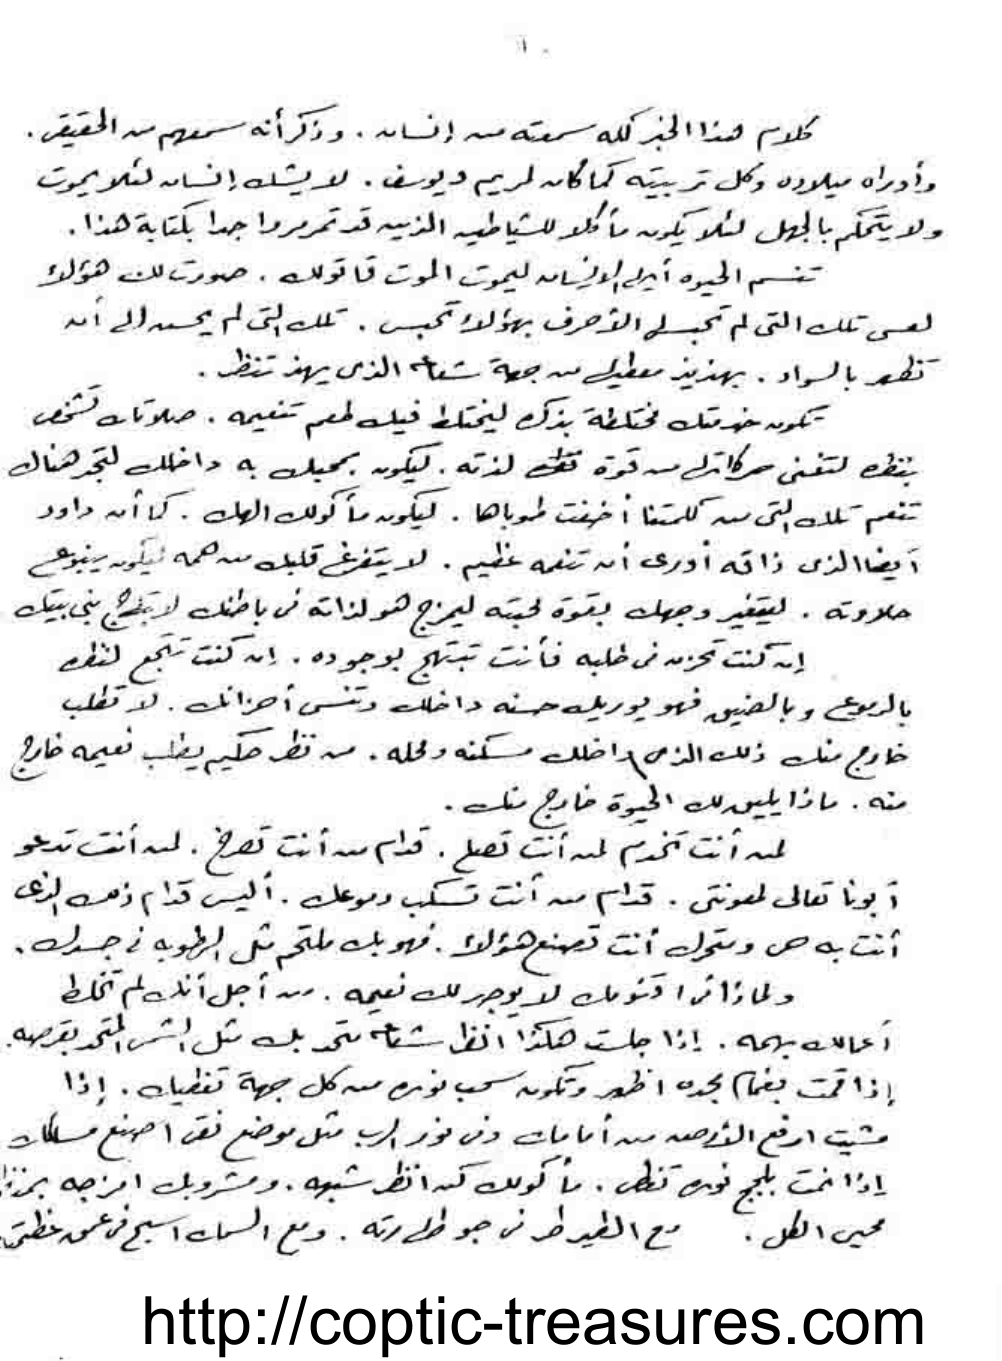 كلام هذا الخبر كله سمعته من إنسان . وذكر أنه سمعهم من الحقيقى .
وأوراه ميلاده وكل تربيته كما كان لمريم ويوسف . لا يشك إنسان لئلا يموت
ولا يتحكم بالجهل لئلا يكون مأكلا للشياطين الذين قد تمرمروا جدا بكتابة هذا .
تنسم الحيوه أيها الإنسان ليموت الموت قاتولك . صورت لك هؤلاء
لعسى تلك التى لم تحبس فى الأحرف بهؤلاء تحبس . تلك التى لم يحسن لى أن
تظهر بالسواد . بهذيذ معطى لى من جهة شعاعه الذى بهذ تنظر .
تكون خدمتك مختلطة بذكره ليختلط فيك طعم تنعيمه . صلاتك تشخص
بنظره لتغنى حركاتك من قوة لذته . ليكون بمحبك به داخلك لتجد هناك
تنعم تلك التى من كلمتنا أخفت طوباها . ليكون مأكولك الهك . كما أن داود
أيضا الذى ذاقه أورى أن تنعمه عظيم . لا يتفرغ قلبك من همه ليكون ينبوع
حلاوته . ليتغير وجهك بقوة محبته ليمزج هو لذاته فى باطنك بنى بيتك
إن كنت تحزن فى طلبه فأنت تبتهج بوجوده . إن كنت تتجع لنظره
بالدموع وبالضيق فهو يوريك حسنه داخلك وتنسى أحزانك . لا تطلب
خارج منك ذلك الذى داخلك مسكنه ومحله . من نظر حكيم يطلب نعيمه خارج
منه . ماذا يليق لك الحيوة خارج منك .
لمن أنت تخدم لمن أنت تصلى . قدام من أنت تصرخ . لمن أنت تدعو
أبونا تعالى لمعونتى . قدام من أنت تسكب دموعك . أليس قدام ذلك الذى
أنت به حى ومتحرك أنت تصنع هؤلاء . فهو بك ملتحم مثل الرطوبه فى جسدك .
ولماذا فى اقنومك لا يوجد لك نعيمه . من أجل أنك لم تخلط
أعمالك بهمه . إذا جلست هكذا انظر شعاعه متحد بك مثل الشمس المتحد بقرصه .
إذا قمت بغمام مجده اظهر وتكون سحب نوره من كل جهة تغطيك . إذا
مشيت ارفع الأرض من أمامك وفى نور الرب مثل موضع نقى اصنع مسلكك
إذا نمت بلجج نوره تغطى . مأكولك كن انظر شبهه . ومشروبك امزجه
محيى الكل . مع الطير طر فى جو طهارته . ومع السمك اسبح فى عمق عظمته
http://coptic-treasures.com